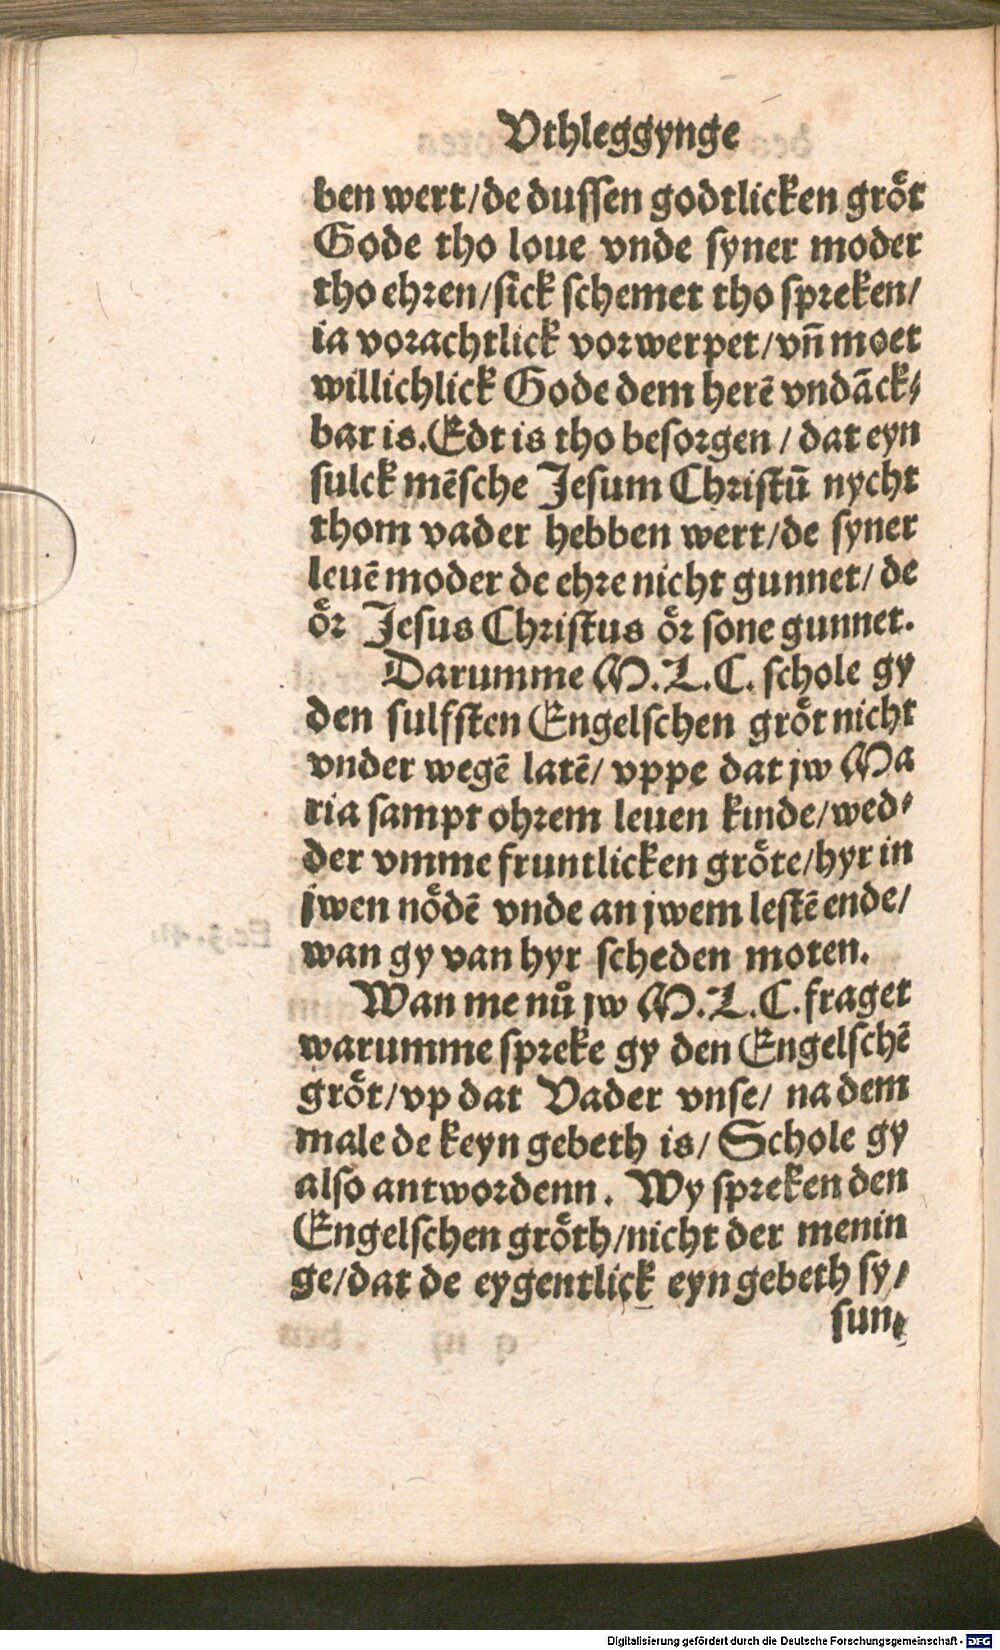 Vthleggynge
ben wert/de dussen godtlicken groͤt
Gode tho loue vnde syner moder
tho ehren/sick schemet tho spreken/
ia vorachtlick vorwerpet/vn̄ moet
willichlick Gode dem herē vndāck⸗
bar is. Edt is tho besorgen/dat eyn
sulck mēsche Jesum Christū nycht
thom vader hebben wert/de syner
leuē moder de ehre nicht gunnet/de
oͤr Jesus Christus oͤr sone gunnet.
Darumme M.L.C. schole gy
den sulfften Engelschen groͤt nicht
vnder wegē latē/vppe dat jw Ma
ria sampt ohrem leuen kinde/wed⸗
der vmme fruntlicken groͤte/hyr in
jwen noͤdē vnde an jwem lestē ende/
wan gy van hyr scheden moten.
Wan me nuͦ jw M.L.C. fraget
warumme spreke gy den Engelschē
groͤt/vp dat Vader vnse/na dem
male de keyn gebeth is/Schole gy
also antwordenn. Wy spreken den
Engelschen groͤth/nicht der menin
ge/dat de eygentlick eyn gebeth sy/
sun⸗
Digitalisierung gefördert durch die Deutsche Forschungsgemeinschaft - DFG